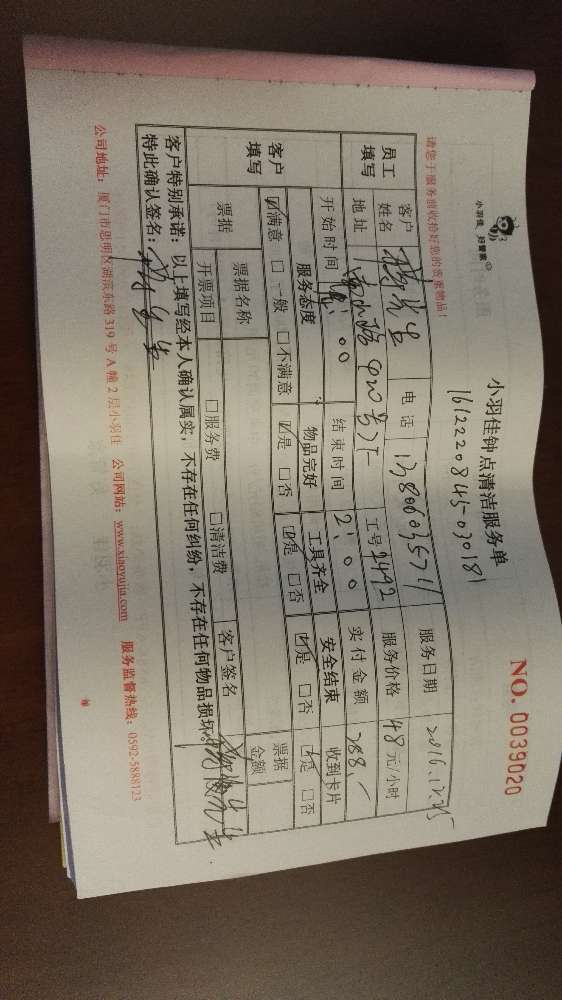 小羽佳 好管家
小羽佳钟点清洁服务单
NO. 0039020
1612220845030181
请您于服务前收拾好您的贵重物品！
员工填写
客户姓名
先生
电话
服务日期 2016.12.25
地址
420号
工号 2492
服务价格 48元/小时
开始时间 :00
结束时间 2:00
实付金额 288.-
客户填写
服务态度 物品完好 工具齐全 安全结束 收到卡片
☑满意 □一般 □不满意 ☑是 □否 ☑是 □否 ☑是 □否 ☑是 □否
票据
票据名称
票据金额
开票项目 □服务费 □清洁费 客户签名
客户特别承诺：以上填写经本人确认属实，不存在任何纠纷，不存在任何物品损坏。
特此确认签名：
公司地址：厦门市思明区湖滨东路 319 号 A 幢 2 层小羽佳 公司网站：www.xiaoyujia.com 服务监督热线：0592-5888123